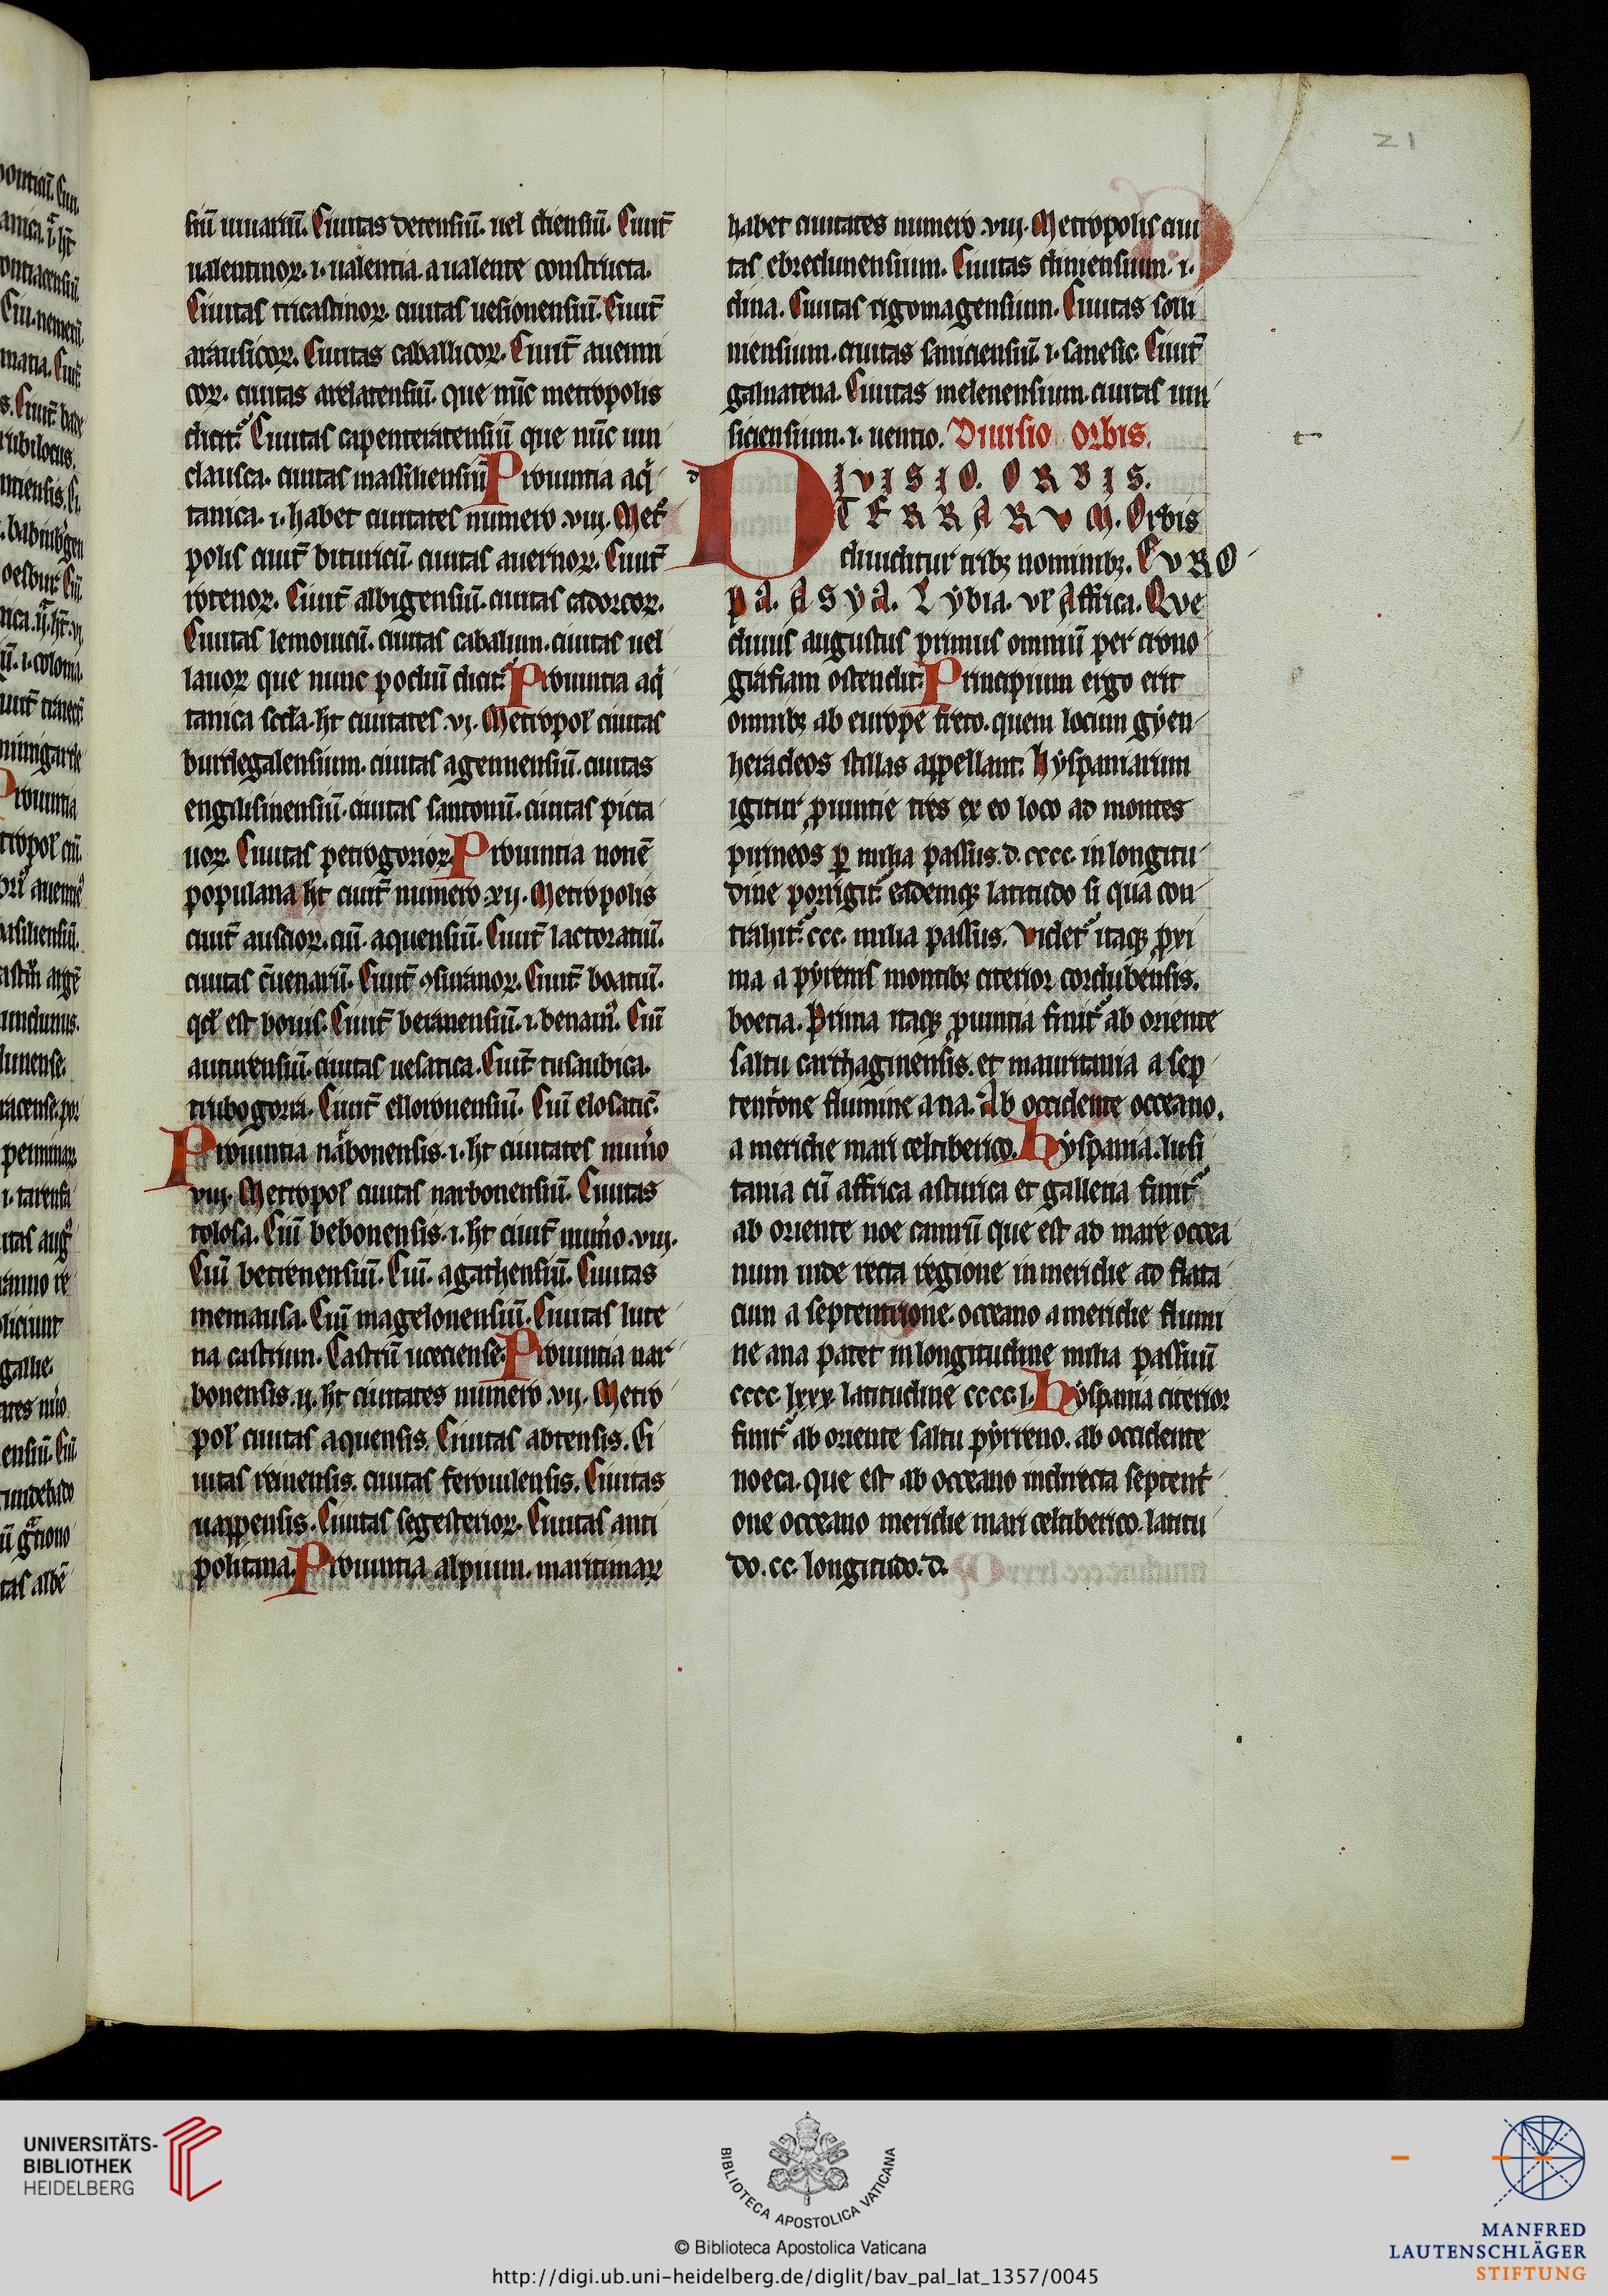 21
siū uiuariū. Ciuitas detensiū. uel diensiū. Ciuit̄
ualentinoꝝ. i. ualentia. a ualente constructa.
Ciuitas tricastinoꝝ. ciuitas uesionensiū. Ciuit̄
arausicoꝝ. Ciuitas caballicoꝝ. Ciuit̄ auenni
coꝝ. ciuitas arelatensiū. que nūc metropolis
dicit᷑. Ciuitas capenteratensiū que nūc uin
clausca. ciuitas massiliensiū. Prouintia aq̇
tanica. i. habet ciuitates numero .viij. Met᷑
polis ciuit̄ bituricū. ciuitas auernoꝝ. Ciuit̄
rotenoꝝ. Ciuit̄ albigensiū. ciuitas cadorcoꝝ.
Ciuitas lemouicū. ciuitas cabalium. ciuitas uel
lauoꝝ que nunc podiū dicit᷑. Prouintia aq̇
tanica scd̄a. ht̄ ciuitates .vj. Metropoł ciuitas
burdegalensium. ciuitas agennensiū. ciuitas
engilisinensiū. ciuitas santonū. ciuitas picta
uoꝝ. Ciuitas petrogorioꝝ. Prouintia nouē
populana ht̄ ciuit̄ numero .xij. Metropolis
ciuit̄ auscioꝝ. ciū. aquensiū. Ciuit̄ lactoratiū.
ciuitas ꝯuenarū. Ciuit̄ ꝯsuranoꝝ. Ciuit̄ boatiū.
qd̄ est bouis. Ciuit̄ beranensiū. i. benaru᷒. Ciū
auturensiū. ciuitas uesatica. Ciuit̄ tusaubica.
turbogoria. Ciuit̄ elloronensiū. Ciū elosatiē.
Prouintia narbonensis. i. ht̄ ciuitates num̄o
viij. Metropoł ciuitas narbonensiū. Ciuitas
tolosa. Ciū bebonensis. i. ht̄ ciuit̄ num̄o .viij.
Ciū betrenensiū. Ciū. agathensiū. Ciuitas
memausa. Ciū magelonensiū. Ciuitas lute
na castrum. Castrū uceciense. Prouintia nar
bonensis. ij. ht̄ ciuitates numero .vij. Metro
poł ciuitas aquensis. Ciuitas abtensis. Ci
uitas reiuensis. ciuitas feroiulensis. Ciuitas
uappensis. Ciuitas segesterioꝝ. Ciuitas anti
politana. Prouintia alpium. maritimaꝝ
habet ciuitates numero .viij. Metropolis ciui
tas ebredunensium. Ciuitas diniensium. i.
dina. Ciuitas rigomagensium. Ciuitas solli
niensium. ciuitas saniciensiū. i. sanesic. Ciuit̄
galnatena. Ciuitas melenensium. ciuitas uin
siciensium. i. uentio. Diuisio Orbis.
DIVISIO. ORBIS.
TERRARVM. Orbis
diuiditur tribꝫ nominibꝫ. EVRO
PA. ASYA. Lybia. uł Affrica. Que
diuus augustus primus omniū per crono
grafiam ostendit. Principium ergo erit
omnibꝫ ab europe freto. quem locum gyen
heracleos stillas appellant. hyspaniarum
igitur ꝓuintie tres ex eo loco ad montes
pirineos ꝑ milia passus. d. cccc. in longitu
dine porrigit᷑. eademqꝫ latitudo si qua con
trahit᷑. ccc. milia passus. Videt᷑ itaqꝫ pri
ma a pyrenis montibꝫ citerior cordubensis.
boetia. Prima itaqꝫ ꝓuintia finit᷑ ab oriente
saltu carthaginensis. et mauritania a sep
tent̔one flumine ana. Ab occidente occeano.
a meridie mari celtiberico. Hyspania. lusi
tania cū affrica asturica et galleria finit᷑
ab oriente noe camrū que est ad mare occea
num inde recta regione in meridie ad flata
cum a septentrione. occeano a meridie flumi
ne ana patet in longitudine milia passuū
cccc. lxxx. latitudine cccc. l. Hyspania citerior
finit᷑ ab oriente saltu pyrreno. ab occidente
noeca. que est ab occeano indirecta septent̔
one occeano meridie mari celtiberico. latitu
do. cc. longitudo. d.
UNIVERSITÄTS-
BIBLIOTHEK
HEIDELBERG
BIBLIOTECA APOSTOLICA VATICANA
© Biblioteca Apostolica Vaticana
http://digi.ub.uni-heidelberg.de/diglit/bav_pal_lat_1357/0045
MANFRED
LAUTENSCHLÄGER
STIFTUNG